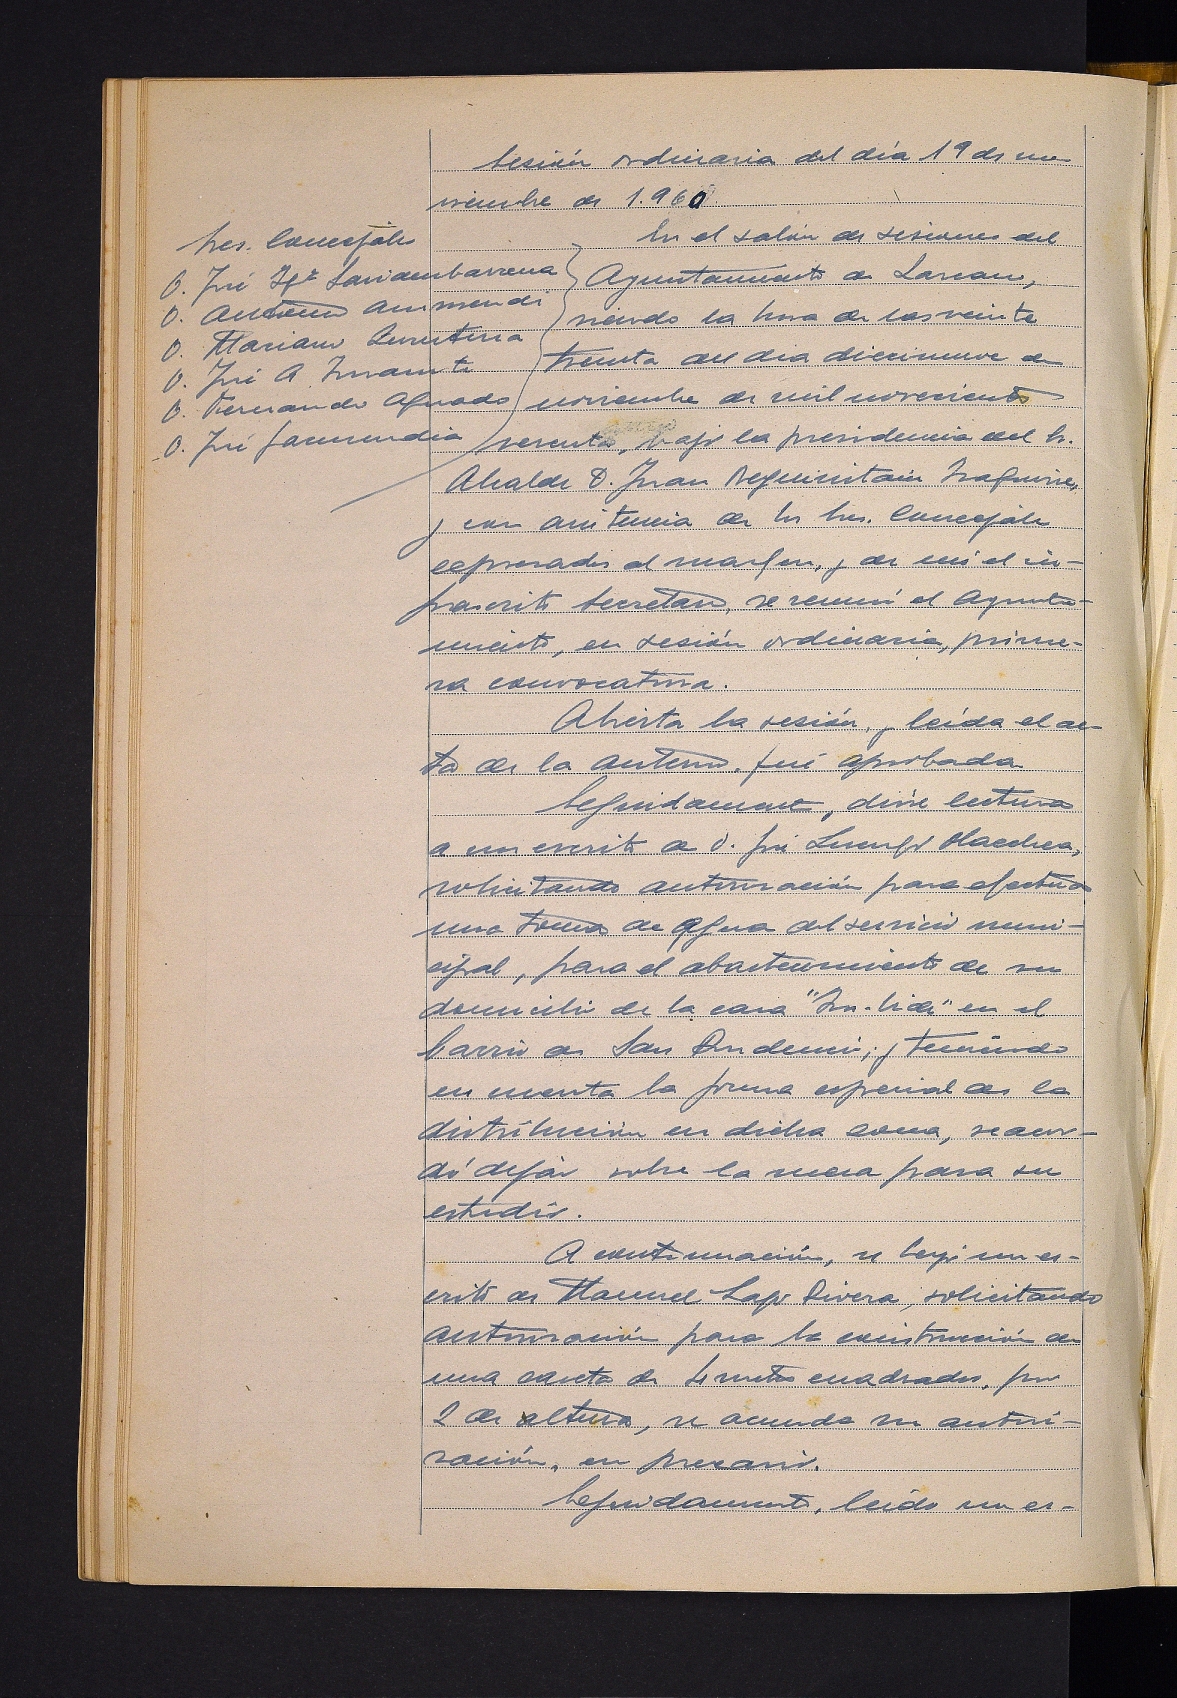 Sesión ordinaria del día 19 de no
viembre de 1.960
Sres. Concejales
D. José Mª Sarideubarrena
D. Antonio Aurmendi
D. Mariano
D. José A.
D. Fernando Aguado
D. José Jaunundia
En el salón de sesiones del
Ayuntamiento de Lazcano,
siendo la hora de las veinte
treinta del dia diecinueve de
noviembre de mil novecientos
sesenta, bajo la presidencia del Sr.
Alcalde D. Juan Iraguirre,
y con asistencia de los Sres. Concejales
expresados al margen, y de mí el in-
frascrito Secretario, se reunió el Ayunta-
miento, en sesión ordinaria, prime-
ra convocatoria.
Abierta la sesión, y leída el ac-
ta de la anterior, fué aprobada
Seguidamente, dióse lectura
a un escrito de D. José Luengo
solicitando autorización para efectuar
una toma de agua del servicio muni-
cipal, para el abastecimiento de su
domicilio de la casa en el
barrio de San Prudencio; y teniendo
en cuenta la forma especial de la
distribución en dicha zona, se acor-
dó dejar sobre la mesa para su
estudio.
A continuación, se leyó un es-
crito de Manuel Lago Rivera, solicitando
autorización para la construcción de
una caseta de 4 metros cuadrados, por
2 de altura, se acuerda su autori-
zación, en precario.
Seguidamente, leído un es-